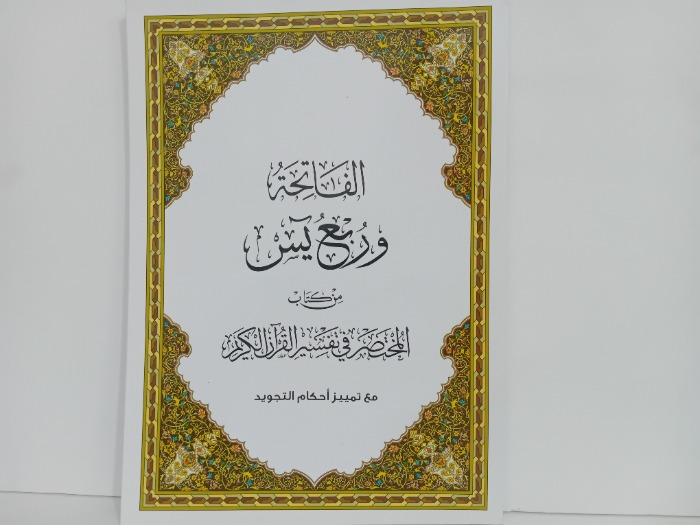 الفَاتِحَةُ
وَرُبْعُ يسٓ
مِنْ كِتَابِ
المُخْتَصَرُ فِي تَفْسِيرِ القُرْآنِ الكَرِيمِ
مع تمييز أحكام التجويد